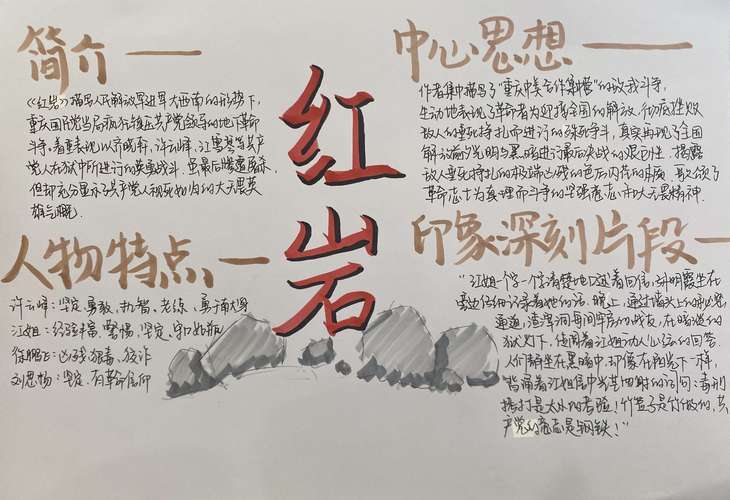 简介
《红岩》描写人民解放军进军大西南的形势下,
重庆国民党当局疯狂镇压共产党领导的地下革命
斗争。着重表现以齐晓轩、许云峰、江雪琴等共产
党人在狱中所进行的英勇战斗,虽最后惨遭屠杀,
但却充分显示了共产党人视死如归的大无畏英
雄气概。
人物特点
许云峰:坚定、勇敢、机智、老练、勇于献身
江姐:经验丰富、警惕、坚定、守口如瓶
徐鹏飞:凶残、狠毒、狡诈
刘思扬:坚定、有革命信仰
红岩
中心思想
作者集中描写了“重庆中美合作集中营”的敌我斗争,
生动地表现了革命者为迎接全国的解放,彻底挫败
敌人的垂死挣扎而进行的殊死争斗,真实再现了全国
解放前夕光明与黑暗进行最后决战的艰巨性,揭露
敌人垂死挣扎的极端凶残的色厉内荏的本质,歌颂了
革命志士为真理而斗争的坚强意志和大无畏精神.
印象深刻片段
“江姐一字一字清楚地口述着回信,胡明霞坐在
旁边仔细记录着她的话。晚上,通过墙头上的秘密
通道,渣滓洞每间牢房的战友,在暗淡的
狱灯下,传阅着江姐功人心弦的回答.
人们静坐在黑暗中,却像在阳光下一样,
背诵着江姐信中光芒四射的词句:毒刑
拷打是太小的考验!竹签子是竹做的,共
产党的意志是钢铁!”